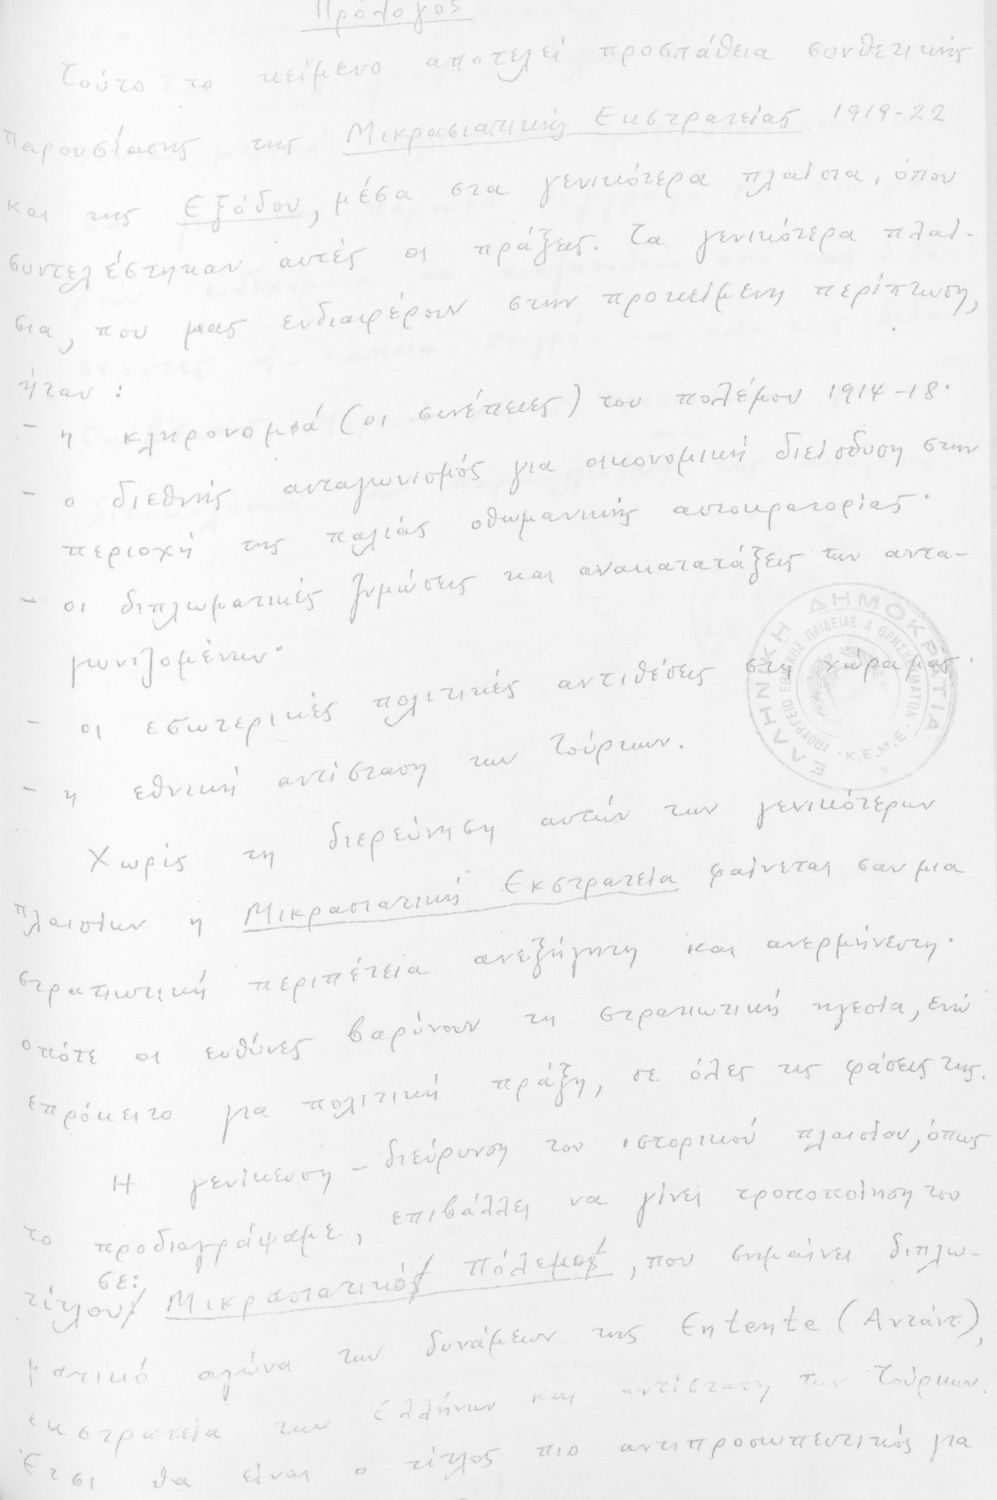 Πρόλογος
Τούτο το κείμενο αποτελεί προσπάθεια συνθετικής
παρουσίασης της Μικρασιατικής Εκστρατείας 1919-22
και της Εξόδου, μέσα στα γενικότερα πλαίσια, όπου
συντελέστηκαν αυτές οι πράξεις. Τα γενικότερα πλαί-
σια, που μας ενδιαφέρουν στην προκείμενη περίπτωση,
ήταν:
- η κληρονομιά (οι συνέπειες) του πολέμου 1914-18·
- ο διεθνής ανταγωνισμός για οικονομική διείσδυση στην
περιοχή της παλιάς οθωμανικής αυτοκρατορίας·
- οι διπλωματικές ζυμώσεις και ανακατατάξεις των αντα-
γωνιζομένων·
- οι εσωτερικές πολιτικές αντιθέσεις στη χώρα μας·
- η εθνική αντίσταση των Τούρκων.
Χωρίς τη διερεύνηση αυτών των γενικότερων
πλαισίων η Μικρασιατική Εκστρατεία φαίνεται σαν μια
στρατιωτική περιπέτεια ανεξήγητη και ανερμήνευτη·
οπότε οι ευθύνες βαρύνουν τη στρατιωτική ηγεσία, ενώ
επρόκειτο για πολιτική πράξη, σε όλες τις φάσεις της.
Η γενίκευση - διεύρυνση του ιστορικού πλαισίου, όπως
το προδιαγράψαμε, επιβάλλει να γίνει τροποποίηση του
τίτλου σε: Μικρασιατικός Πόλεμος, που σημαίνει διπλω-
ματικό αγώνα των δυνάμεων της Entente (Αντάντ),
εκστρατεία των Ελλήνων και αντίσταση των Τούρκων.
Έτσι θα είναι ο τίτλος πιο αντιπροσωπευτικός για
ΕΛΛΗΝΙΚΗ ΔΗΜΟΚΡΑΤΙΑ
ΥΠΟΥΡΓΕΙΟ ΕΘΝΙΚΗΣ ΠΑΙΔΕΙΑΣ & ΘΡΗΣΚΕΥΜΑΤΩΝ
Κ.Ε.Μ.Ε.